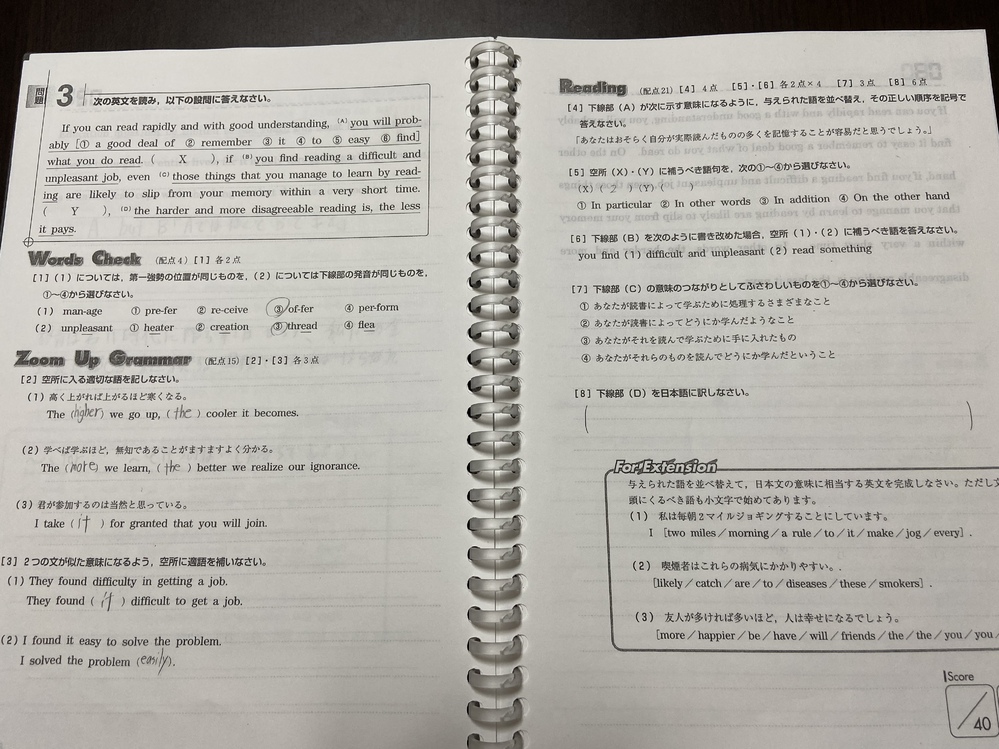 問題 3 次の英文を読み，以下の設問に答えなさい。
If you can read rapidly and with good understanding, (A) you will prob-
ably [① a good deal of ② remember ③ it ④ to ⑤ easy ⑥ find]
what you do read. ( X ), if (B) you find reading a difficult and
unpleasant job, even (C) those things that you manage to learn by read-
ing are likely to slip from your memory within a very short time.
( Y ), (D) the harder and more disagreeable reading is, the less
it pays.
Words Check (配点4) [1] 各2点
[1] (1) については，第一強勢の位置が同じものを，(2) については下線部の発音が同じものを，
①〜④から選びなさい。
(1) man-age ① pre-fer ② re-ceive ③ of-fer ④ per-form
(2) unpleasant ① heater ② creation ③ thread ④ flea
Zoom Up Grammar (配点15) [2]・[3] 各3点
[2] 空所に入る適切な語を記しなさい。
(1) 高く上がれば上がるほど寒くなる。
The (higher) we go up, (the) cooler it becomes.
(2) 学べば学ぶほど，無知であることがますますよく分かる。
The (more) we learn, (the) better we realize our ignorance.
(3) 君が参加するのは当然と思っている。
I take (it) for granted that you will join.
[3] 2つの文が似た意味になるよう，空所に適語を補いなさい。
(1) They found difficulty in getting a job.
They found (it) difficult to get a job.
(2) I found it easy to solve the problem.
I solved the problem (easily).
Reading (配点21) [4] 4点 [5]・[6] 各2点×4 [7] 3点 [8] 6点
[4] 下線部 (A) が次に示す意味になるように，与えられた語を並べ替え，その正しい順序を記号で
答えなさい。
「あなたはおそらく自分が実際読んだものの多くを記憶することが容易だと思うでしょう。」
[5] 空所 (X)・(Y) に補うべき語句を，次の①〜④から選びなさい。
(X) ( 2 ) (Y) ( )
① In particular ② In other words ③ In addition ④ On the other hand
[6] 下線部 (B) を次のように書き改めた場合，空所 (1)・(2) に補うべき語を答えなさい。
you find (1) difficult and unpleasant (2) read something
[7] 下線部 (C) の意味のつながりとしてふさわしいものを①〜④から選びなさい。
① あなたが読書によって学ぶために処理するさまざまなこと
② あなたが読書によってどうにか学んだようなこと
③ あなたがそれを読んで学ぶために手に入れたもの
④ あなたがそれらのものを読んでどうにか学んだということ
[8] 下線部 (D) を日本語に訳しなさい。
For Extension
与えられた語を並べ替えて，日本文の意味に相当する英文を完成しなさい。ただし文
頭にくるべき語も小文字で始めてあります。
(1) 私は毎朝2マイルジョギングすることにしています。
I [two miles / morning / a rule / to / it / make / jog / every] .
(2) 喫煙者はこれらの病気にかかりやすい。.
[likely / catch / are / to / diseases / these / smokers] .
(3) 友人が多ければ多いほど，人は幸せになるでしょう。
[more / happier / be / have / will / friends / the / the / you / you
Score
/40